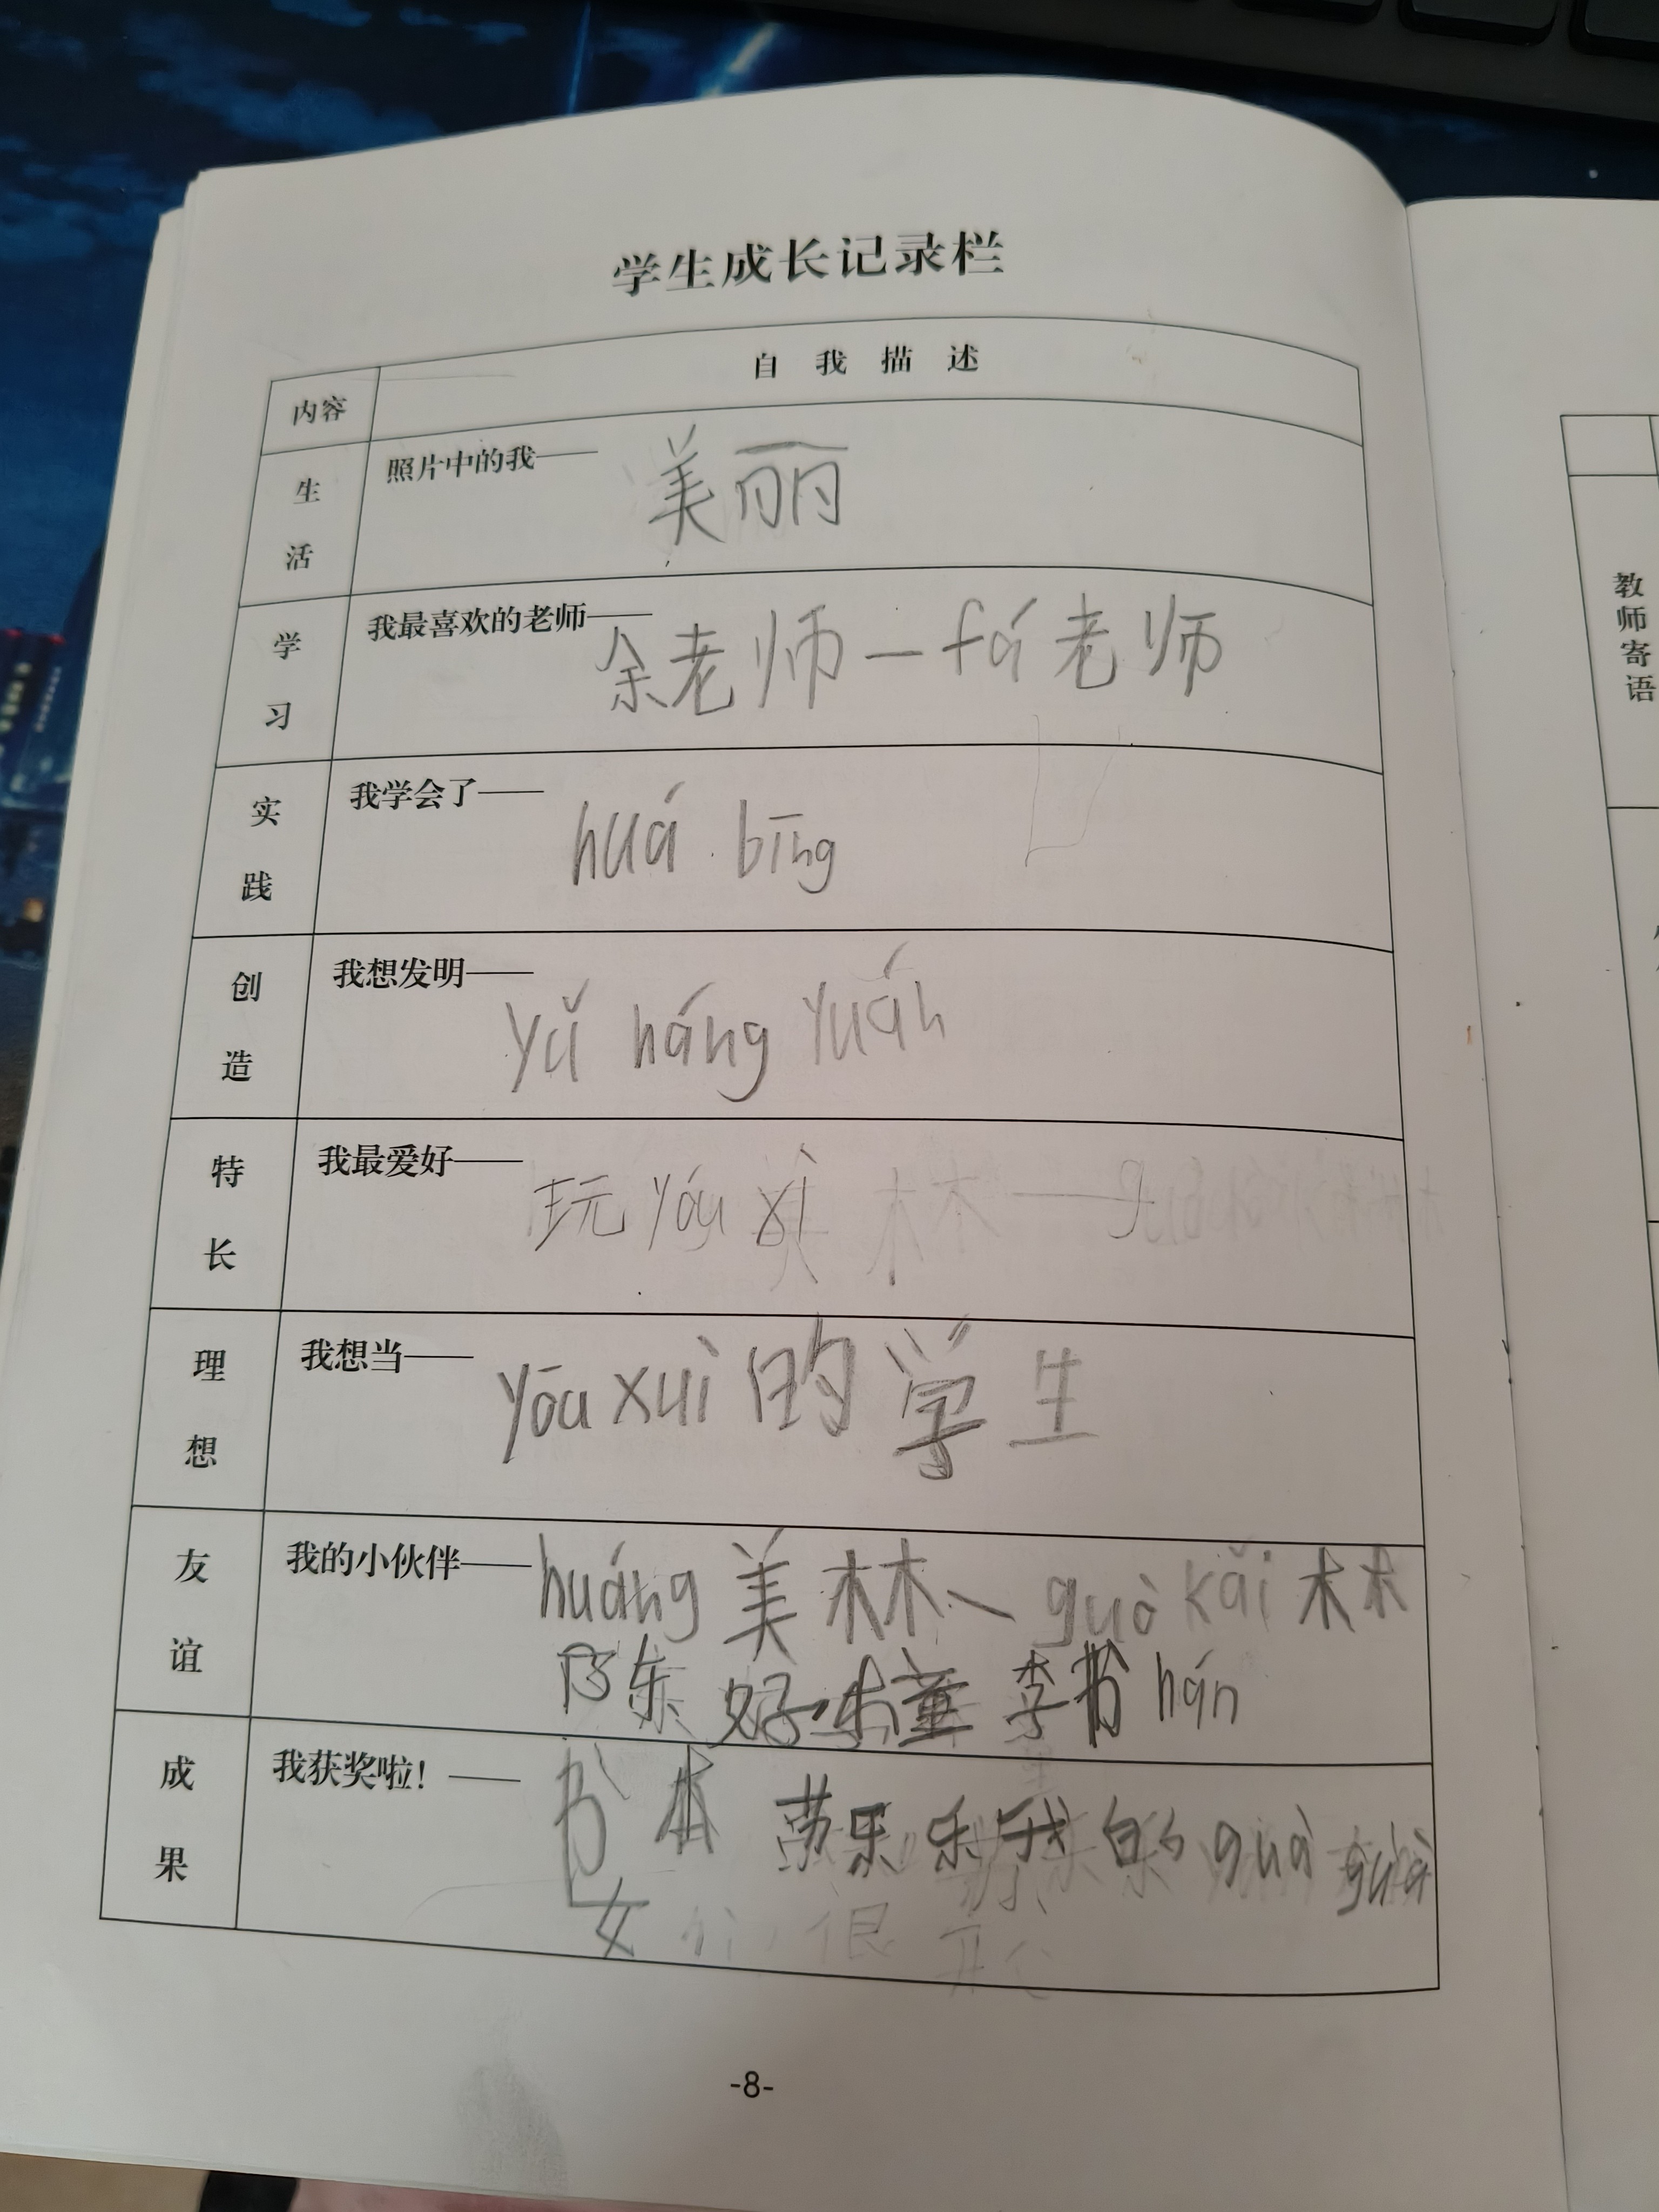 学生成长记录栏
内容 自我描述
生活 照片中的我—— 美丽
学习 我最喜欢的老师—— 余老师一fá老师
实践 我学会了—— huá bīng
创造 我想发明—— yǔ háng yuán
特长 我最爱好—— 玩yóu xì
理想 我想当—— yōu xuì的学生
友谊 我的小伙伴—— huáng美林、guò kǎi林
东好 童 李书hán
成果 我获奖啦！—— 书本 乐 乐 我的 guà guà
女 们 很 开心
-8-
教师寄语